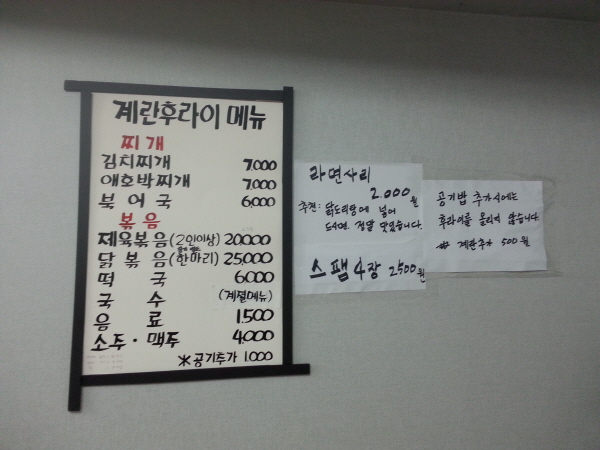 계란후라이 메뉴
찌개
김치찌개 7.000
애호박찌개 7.000
북어국 6000
볶음
제육볶음(2인이상) 20.000
닭볶음(한마리) 25,000
떡국 6000
국수 (계절메뉴)
음료 1.500
소주·맥주 4.000
*공기추가 1.000
라면사리
2.000원
추천: 닭도리탕에 넣어
드시면 정말 맛있습니다.
스팸 4장 2500원
공기밥 추가시에는
후라이를 올리지 않습니다
# 계란추가 500원